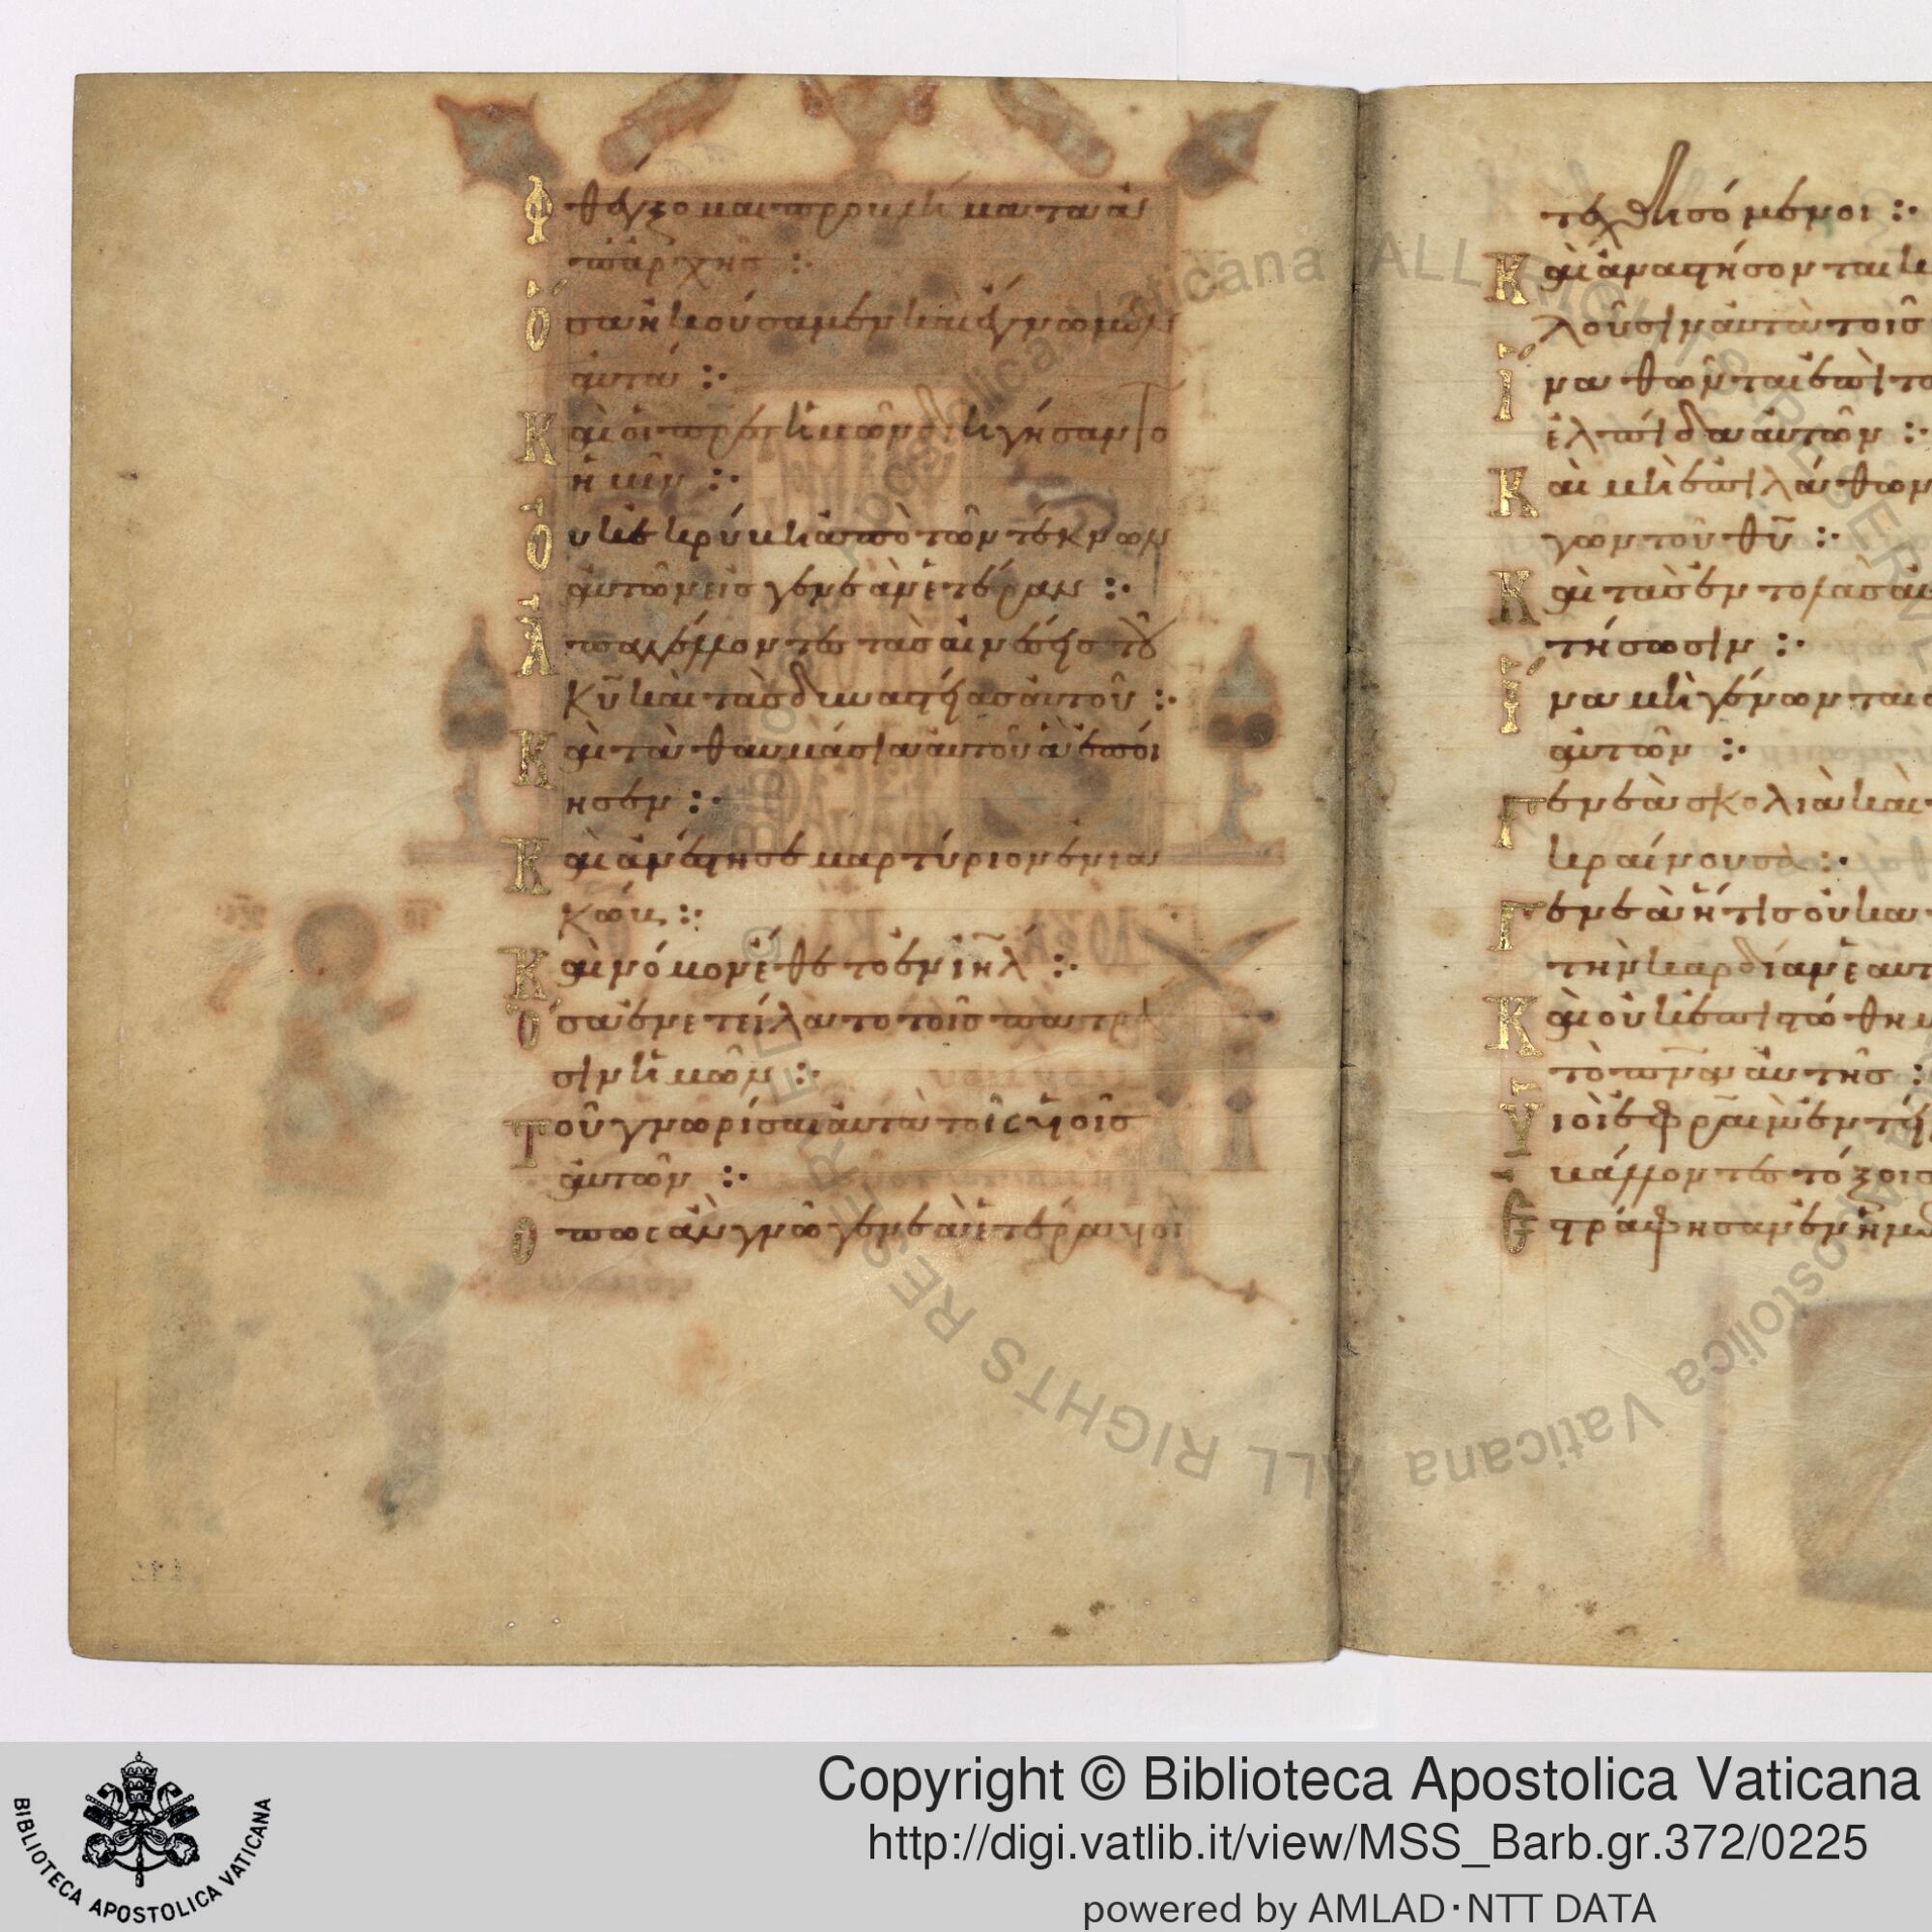 Φθέγξομαι προβλήματα ἀ
π' ἀρχῆς :·
Ὅσα ἠκούσαμεν καὶ ἔγνωμεν
αὐτά :·
Καὶ οἱ πρς ἡμῶν διηγήσαντο
ἡμῖν :·
Οὐκ ἐκρύβη ἀπὸ τῶν τέκνων
αὐτῶν εἰς γενεὰν ἑτέραν :·
Ἀπαγγέλλοντες τὰς αἰνέσεις τοῦ
κυ καὶ τὰς δυναστείας αὐτοῦ :·
Καὶ τὰ θαυμάσια αὐτοῦ ἃ ἐποί
ησεν :·
Καὶ ἀνέστησε μαρτύριον ἐν Ια
κώβ :·
Καὶ νόμον ἔθετο ἐν ιηλ :·
Ὅσα ἐνετείλατο τοῖς πατρά
σιν ἡμῶν :·
Τοῦ γνωρίσαι αὐτὰ τοῖς υἱοῖς
αὐτῶν :·
Ὅπως ἂν γνῷ γενεὰ ἑτέρα υἱοὶ
τεχθησόμενοι :·
Καὶ ἀναστήσονται κ
λοῦσιν αὐτὰ τοῖς
Ἵνα θῶνται ἐπὶ το
ἐλπίδα αὐτῶν :·
Καὶ μὴ ἐπιλάθων
γων τοῦ θυ :·
Καὶ τὰς ἐντολὰς αὐ
τήσωσιν :·
Ἵνα μὴ γένωνται
αὐτῶν :·
Γενεὰ σκολιὰ καὶ
κραίνουσα :·
Γενεὰ ἥτις οὐ κα
τὴν καρδίαν ἑαυτ
Καὶ οὐκ ἐπιστώθη μ
τὸ πνα αὐτῆς :
Υἱοὶ Ἐφραὶμ ἐντεί
βάλλοντες τόξοις
Ἐστράφησαν ἐν ἡμέ
Copyright © Biblioteca Apostolica Vaticana
http://digi.vatlib.it/view/MSS_Barb.gr.372/0225
powered by AMLAD·NTT DATA
BIBLIOTECA APOSTOLICA VATICANA